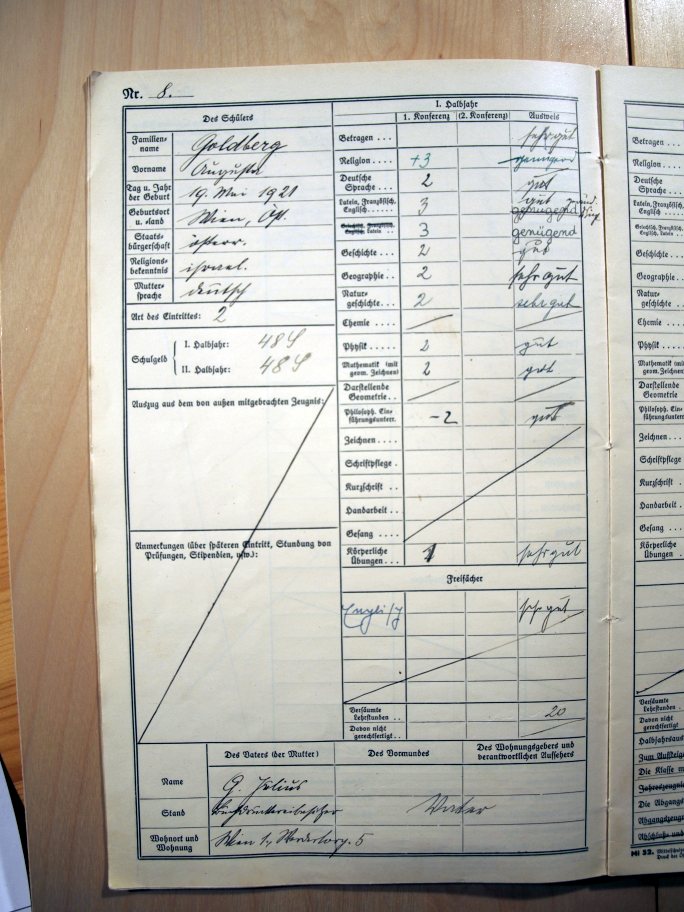 Nr. 8.
Des Schülers
Familien-
name Goldberg
Vorname Augusta
Tag u. Jahr
der Geburt 19. Mai 1921
Geburtsort
u. =land Wien, Öst.
Staats-
bürgerschaft österr.
Religions-
bekenntnis israel.
Mutter-
sprache deutsch
Art des Eintrittes: 2
Schulgeld
I. Halbjahr: 48 S
II. Halbjahr: 48 S
Auszug aus dem von außen mitgebrachten Zeugnis:
Anmerkungen (über späteren Eintritt, Stundung von
Prüfungen, Stipendien, usw.):
I. Halbjahr
1. Konferenz (2. Konferenz) Ausweis
Betragen . . . . sehr gut
Religion . . . . +3 genügend
Deutsche
Sprache . . . 2 gut
Latein, Französisch,
Englisch . . . . . 3 gut genügend
Griechisch, Französisch,
Englisch, Latein . . 3 genügend
Geschichte . . 2 gut
Geographie . . 2 sehr gut
Natur-
geschichte . . 2 sehr gut
Chemie . . . . .
Physik . . . . 2 gut
Mathematik (mit
geom. Zeichnen) 2 gut
Darstellende
Geometrie . .
Philosoph. Ein-
führungsunterr. -2 gut
Zeichnen . . . .
Schriftpflege .
Kurzschrift . .
Handarbeit . .
Gesang . . . .
Körperliche
Übungen . . . 1 sehr gut
Freifächer
Englisch sehr gut
Versäumte
Lehrstunden . . 20
Davon nicht
gerechtfertigt . .
Des Vaters (der Mutter) Des Vormundes Des Wohnungsgebers und
verantwortlichen Aufsehers
Name G. Julius
Stand Buchdruckereibesitzer Vater
Wohnort und
Wohnung Wien 1., 5
Betragen . . . .
Religion . . . .
Deutsche
Sprache . . .
Latein, Französisch,
Englisch . . . . .
Griechisch, Französisch,
Englisch, Latein . .
Geschichte . .
Geographie . .
Natur-
geschichte . .
Chemie . . . .
Physik . . . .
Mathematik (mit
geom. Zeichnen)
Darstellende
Geometrie . .
Philosoph. Ein-
führungsunterr.
Zeichnen . . .
Schriftpflege .
Kurzschrift . .
Handarbeit . .
Gesang . . . .
Körperliche
Übungen . . .
Versäumte
Lehrstunden . .
Davon nicht
gerechtfertigt . .
Halbjahrsaus
Zum Aufsteige
Die Klasse w
Jahreszeugni
Die Abgangs
Abgangszeugn
Abschluß- und
Mi 32.